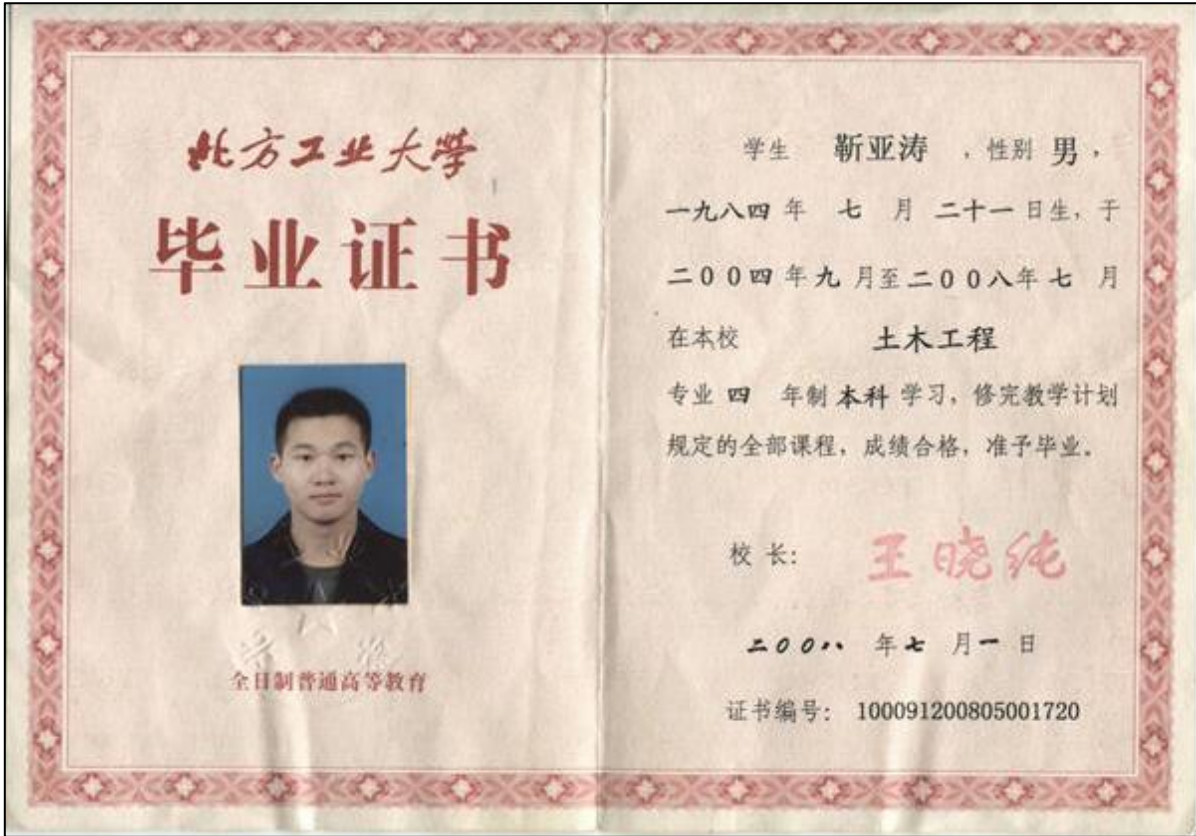 北方工业大学
毕业证书
全日制普通高等教育
学生 靳亚涛 ，性别 男，
一九八四 年 七 月 二十一 日生，于
二00四 年 九 月至 二00八 年 七 月
在本校 土木工程
专业 四 年制 本科 学习，修完教学计划
规定的全部课程，成绩合格，准予毕业。
校 长： 王晓纯
二00八 年 七 月 一 日
证书编号： 100091200805001720